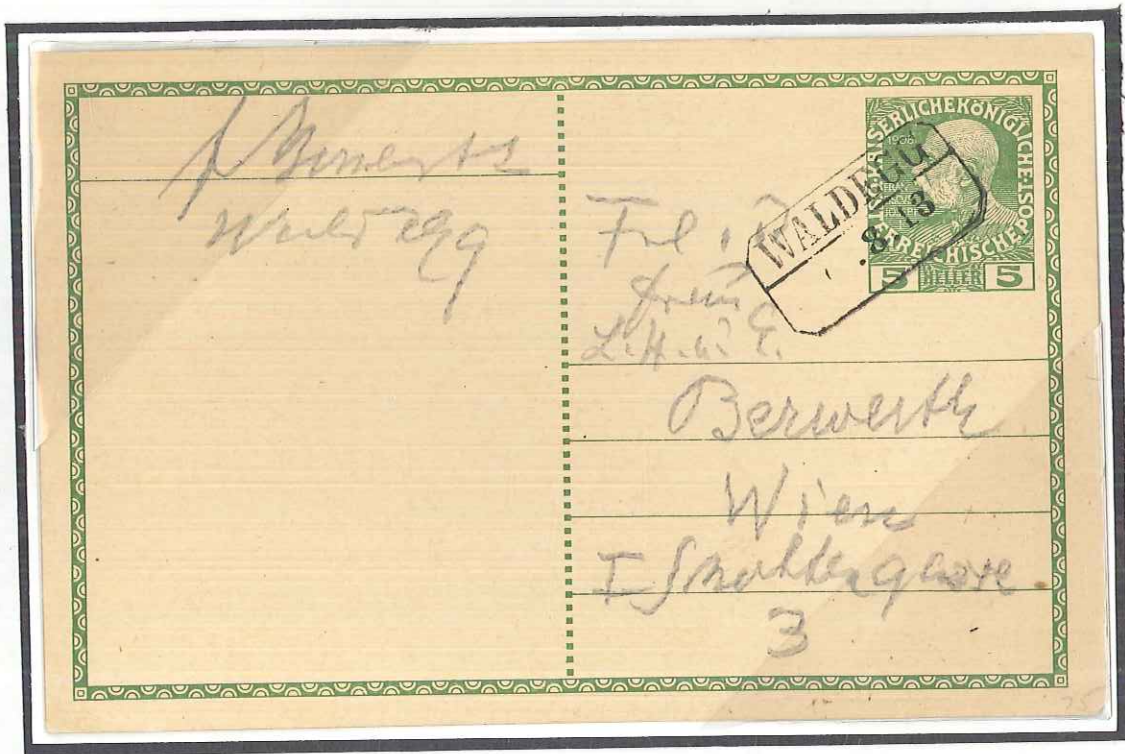 Waldegg
KAISERLICHEKÖNIGLICHE ÖSTERREICHISCHE POST
1908
5 HELLER 5
WALDEGG
8 13
Frl.
L. H. u. E.
Berwerth
Wien
I Schottengasse
3